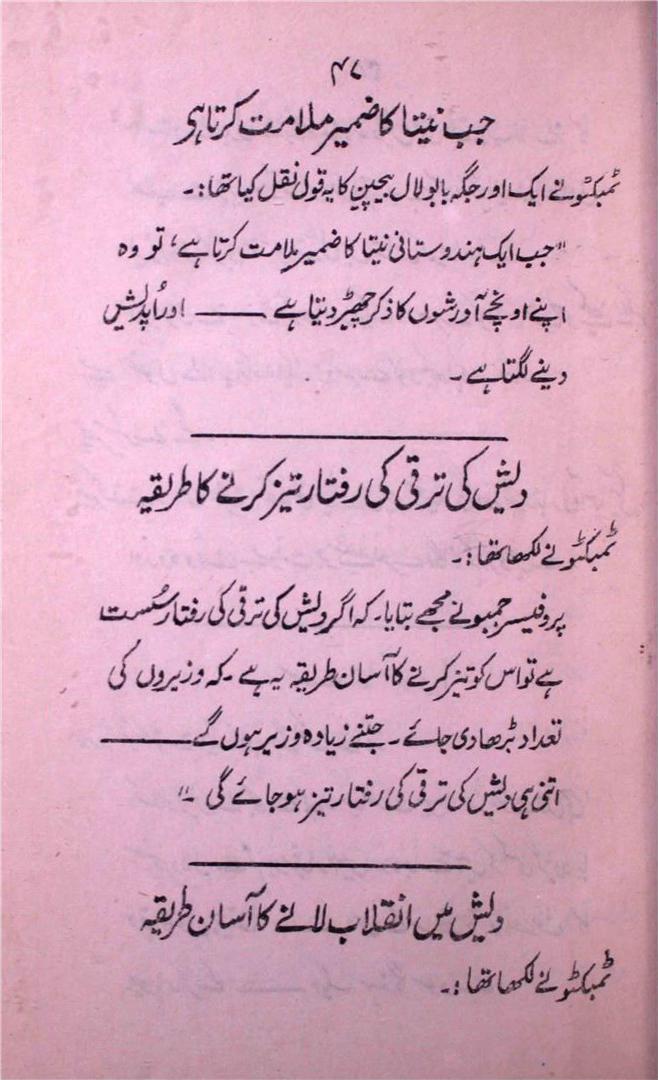 ۴۷
جب نیتا کا ضمیر ملامت کرتا ہی
ٹمبکٹو نے ایک اور جگہ بابو لال بیچین کا یہ قول نقل کیا تھا:۔
"جب ایک ہندوستانی نیتا کا ضمیر ملامت کرتا ہے، تو وہ
اپنے اونچے آورشوں کا ذکر چھیڑ دیتا ہے ——— اور اُپدلیش
دینے لگتا ہے۔
دلیش کی ترقی کی رفتار تیز کرنے کا طریقہ
ٹمبکٹو نے لکھا تھا:۔
پروفیسر جمبو نے مجھے بتایا۔ کہ اگر دلیش کی ترقی کی رفتار سُست
ہے تو اس کو تیز کرنے کا آسان طریقہ یہ ہے۔ کہ وزیروں کی
تعداد بڑھا دی جائے۔ جتنے زیادہ وزیر ہوں گے ———
اتنی ہی دلیش کی ترقی کی رفتار تیز ہو جائے گی۔"
دلیش میں انقلاب لانے کا آسان طریقہ
ٹمبکٹو نے لکھا تھا:۔